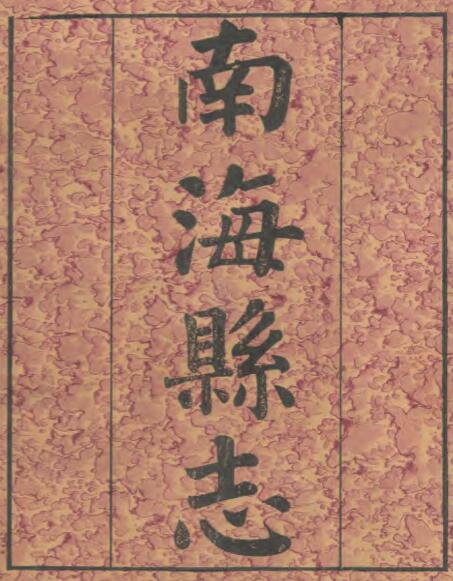 南海縣志